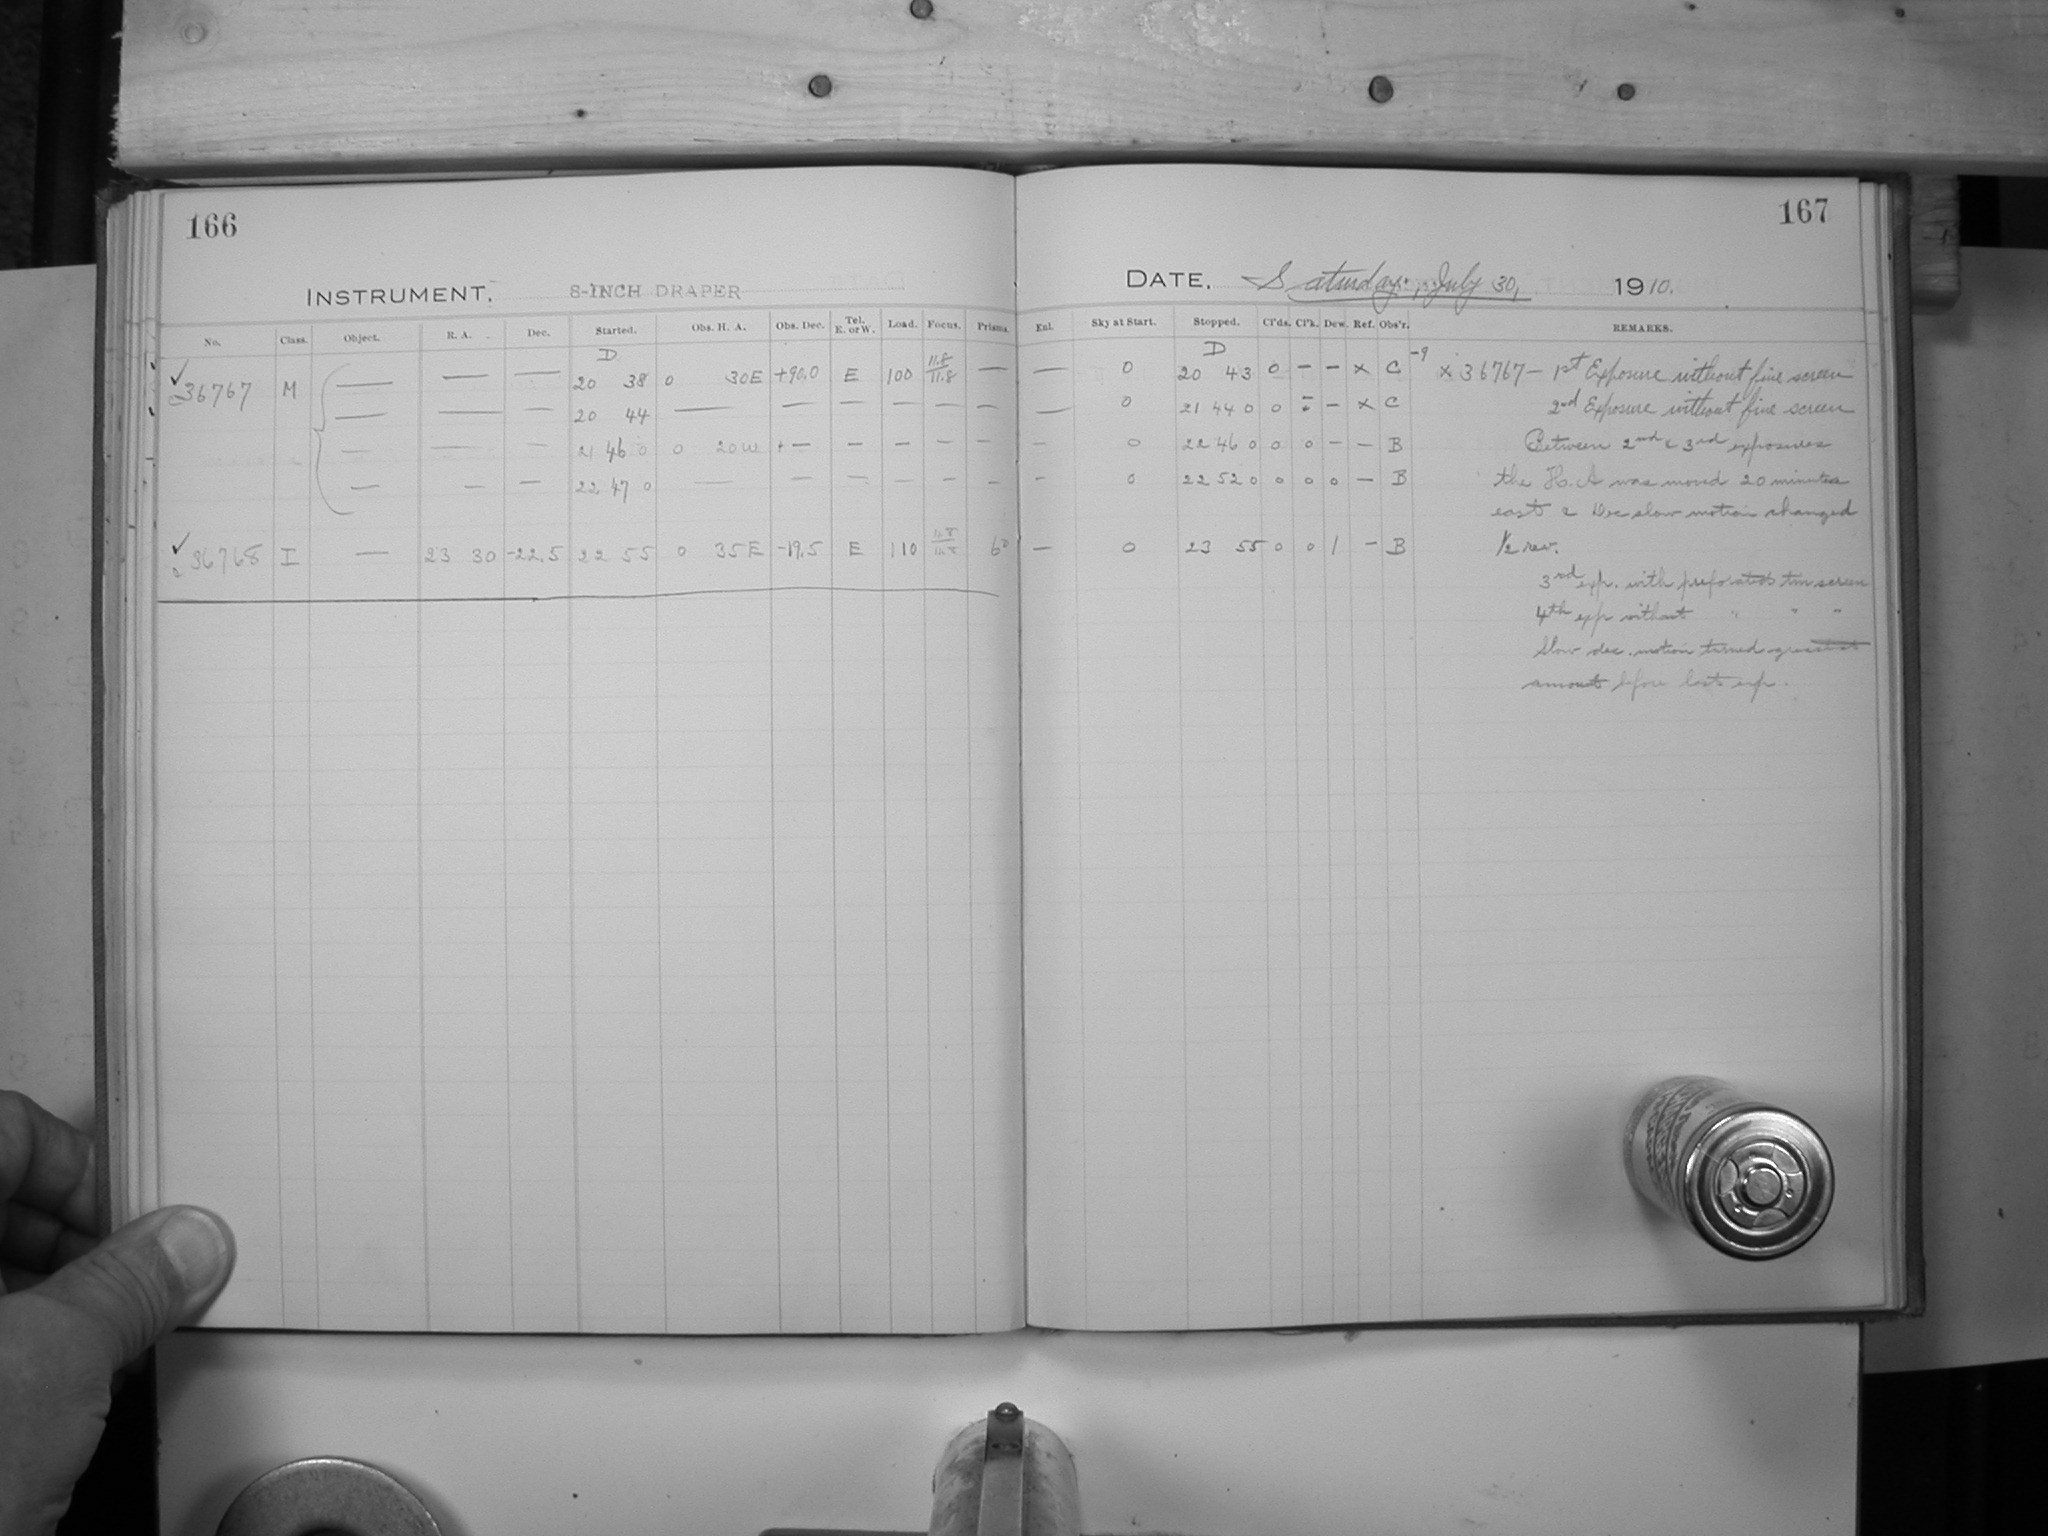 166
INSTRUMENT, 8-INCH DRAPER
No. Class. Object. R. A. Dec. Started. Obs. H. A. Obs. Dec. Tel. E. or W. Load. Focus. Prisms.
D
✓ 36767 M — — — 20 38 0 30E +90.0 E 100 11.8/11.8 —
— — — 20 44 — — — — — —
— — — 21 46 0 0 20W + — — — — —
— — — 22 47 0 — — — — — —
✓ 36768 I — 23 30 -22.5 22 55 0 35E -19.5 E 110 6°
167
DATE, Saturday, July 30, 1910.
Enl. Sky at Start. Stopped. Cl'ds. Cl'k. Dew. Ref. Obs'r. REMARKS.
D
— 0 20 43 0 – – x C -9 x 36767 – 1st Exposure without fine screen
— 0 21 44 0 0 – x C 2nd Exposure without fine screen
– 0 22 46 0 0 0 – – B Between 2nd & 3rd exposures
– 0 22 52 0 0 0 0 – B the H. A was moved 20 minutes
east & Dec slow motion changed
— 0 23 55 0 0 1 – B 1/2 rev.
3rd exp. with preforated tin screen
4th exp without " " "
Slow dec. motion turned
amount before last exp.